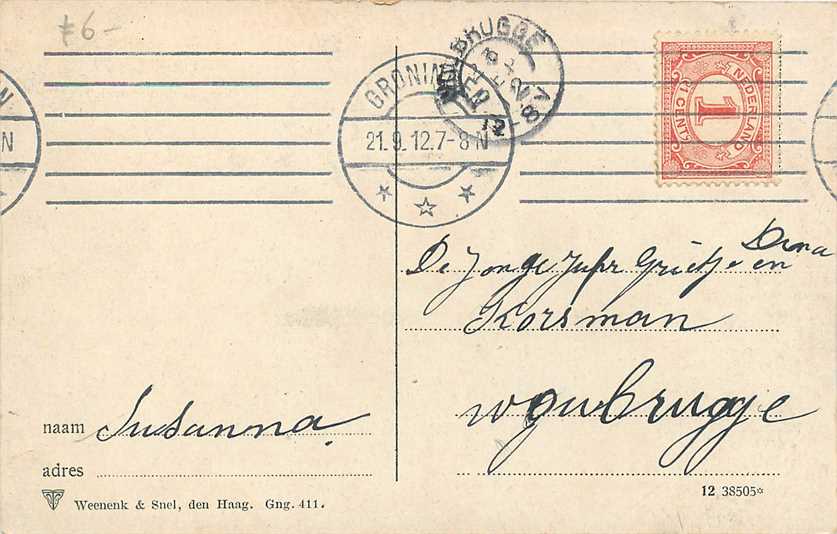 £6-
GRONINGEN
21.9.12.7-8N
BRUGGE
NEDERLAND
1
1 CENT
N
N
De Jonge Jufr Grietje en Dina
Korsman
naam Susanna
adres
Weenenk & Snel, den Haag. Gng. 411.
12 38505*